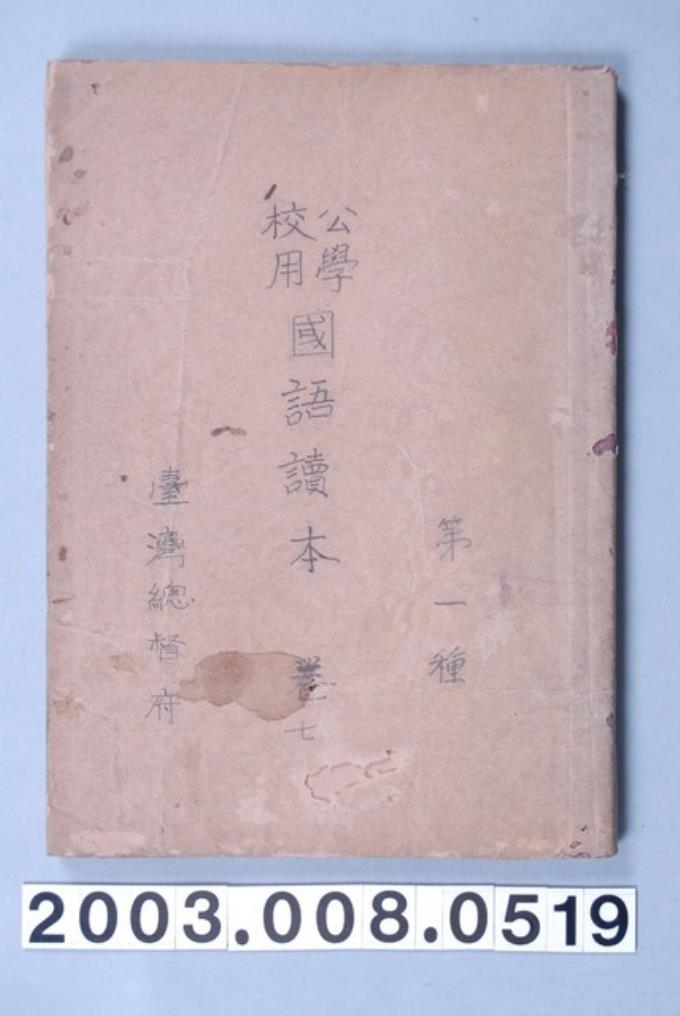 第一種
公學
校用
國語讀本 卷七
臺灣總督府
2003.008.0519